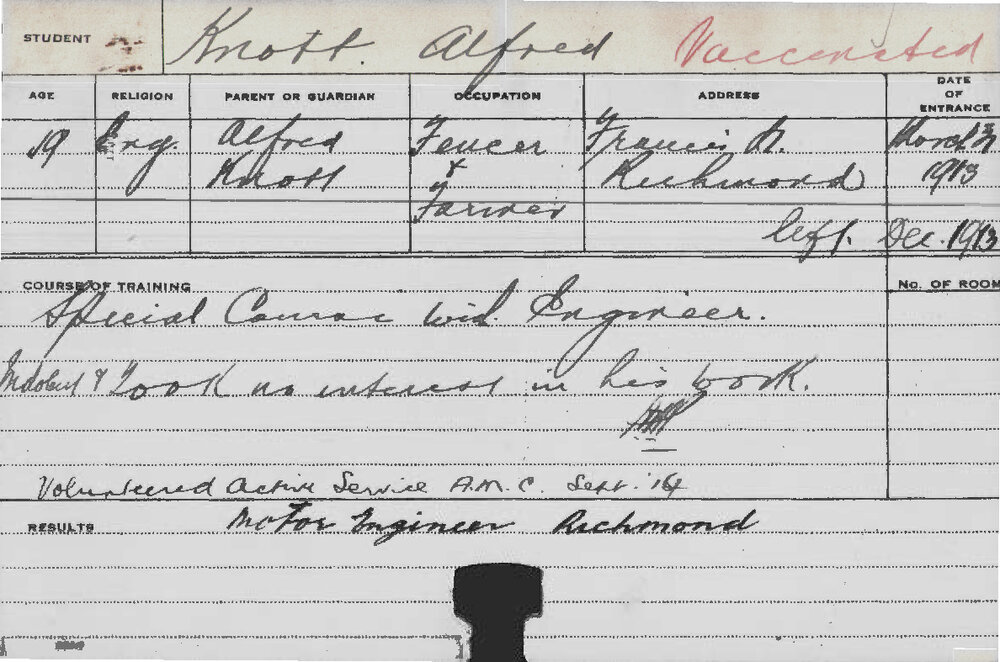 STUDENT Knott. Alfred Vaccinated
AGE RELIGION PARENT OR GUARDIAN OCCUPATION ADDRESS DATE OF ENTRANCE
19 Eng. Alfred Fencer Francis St. March
Knott & Richmond 1913
Farmer
left. Dec. 1913
COURSE OF TRAINING No. OF ROOM
Special Course wid. Engineer.
Indolent & Took no interest in his work.
Volunteered Active Service A.M.C. Sept. '14
RESULTS Motor Engineer Richmond